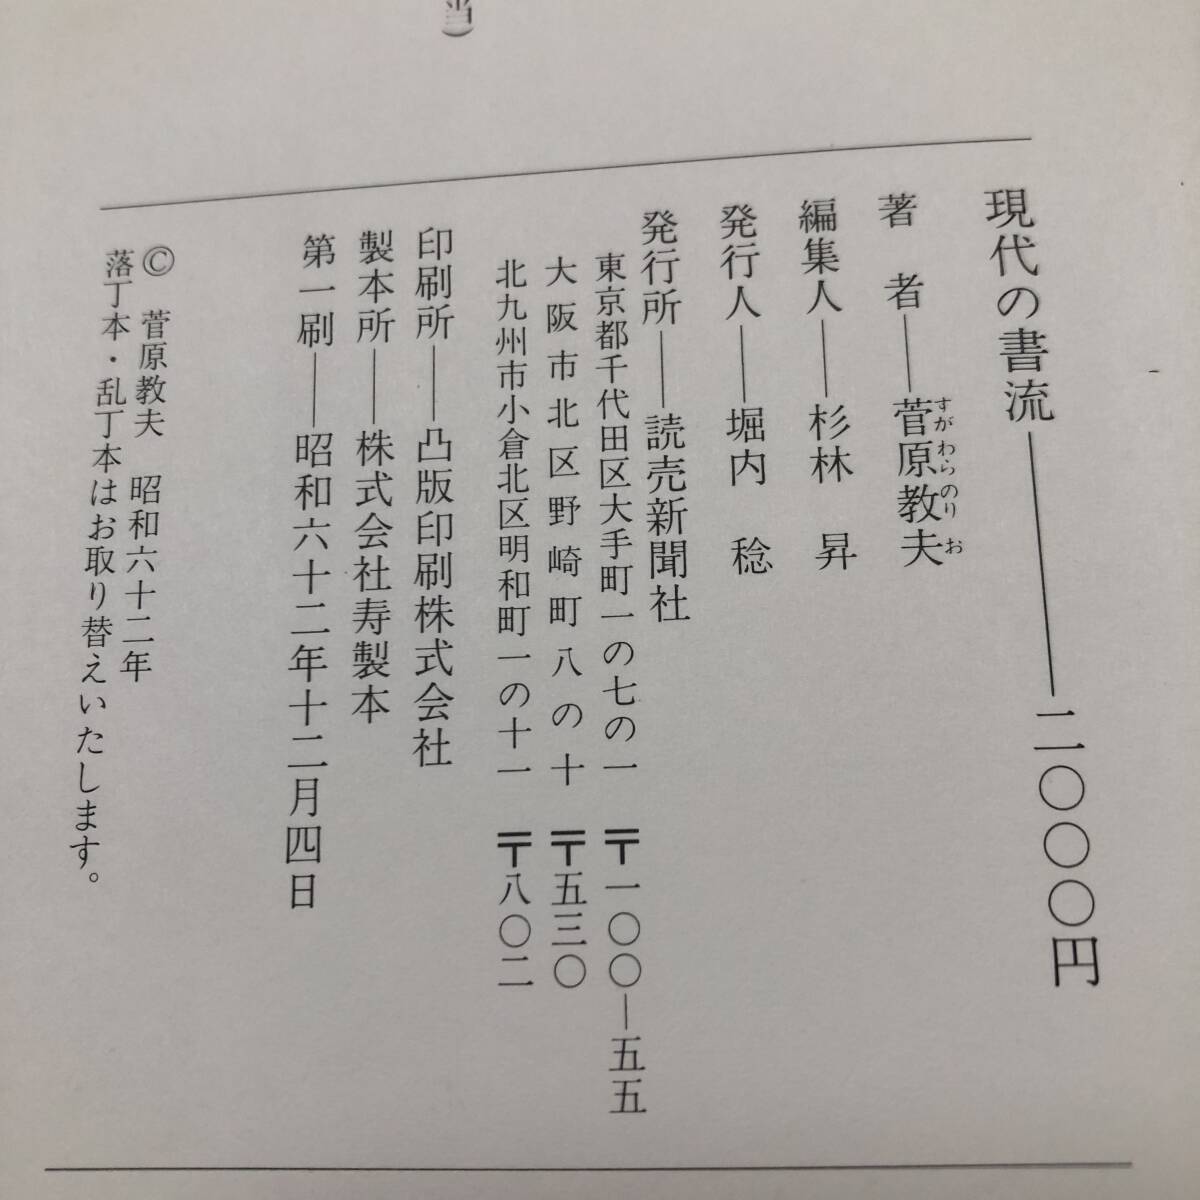 当)
現代の書流――二〇〇〇円
著者――菅原教夫
すがわらのりお
編集人――杉林 昇
発行人――堀内 稔
発行所――読売新聞社
東京都千代田区大手町一の七の一 〒一〇〇―五五
大阪市北区野崎町八の十 〒五三〇
北九州市小倉北区明和町一の十一 〒八〇二
印刷所――凸版印刷株式会社
製本所――株式会社寿製本
第一刷――昭和六十二年十二月四日
© 菅原教夫 昭和六十二年
落丁本・乱丁本はお取り替えいたします。